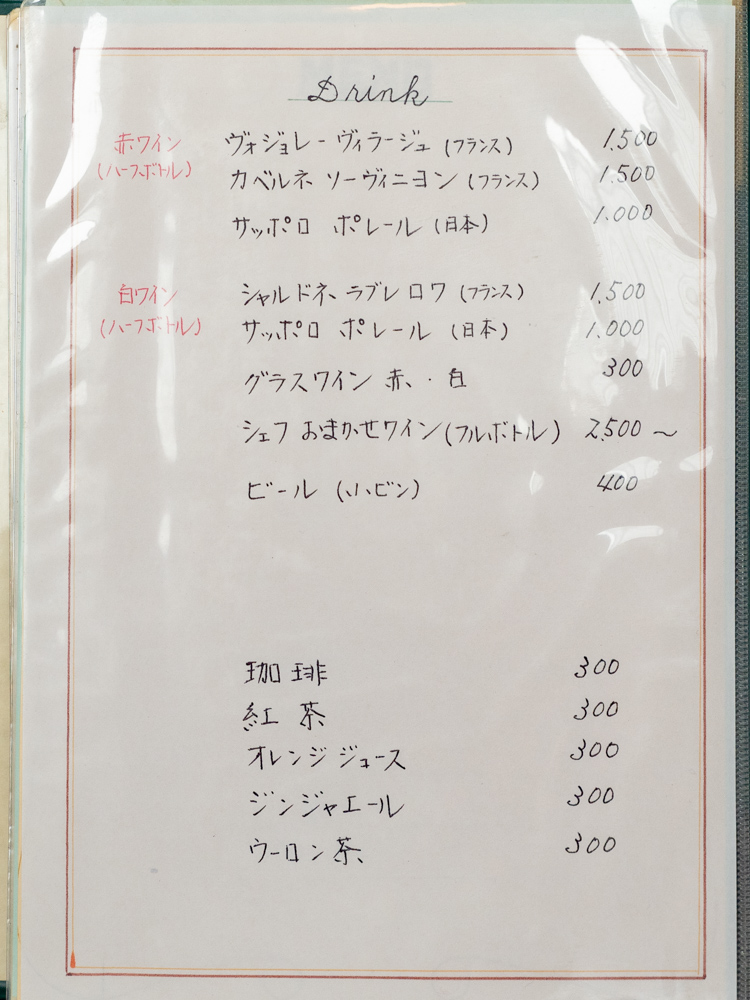 Drink
赤ワイン ヴォジョレー ヴィラージュ (フランス) 1.500
(ハーフボトル) カベルネ ソーヴィニヨン (フランス) 1.500
サッポロ ポレール (日本) 1.000
白ワイン シャルドネ ラブレ ロワ (フランス) 1.500
(ハーフボトル) サッポロ ポレール (日本) 1.000
グラスワイン 赤・白 300
シェフ おまかせワイン (フルボトル) 2.500 〜
ビール (小ビン) 400
珈琲 300
紅茶 300
オレンジジュース 300
ジンジャエール 300
ウーロン茶 300